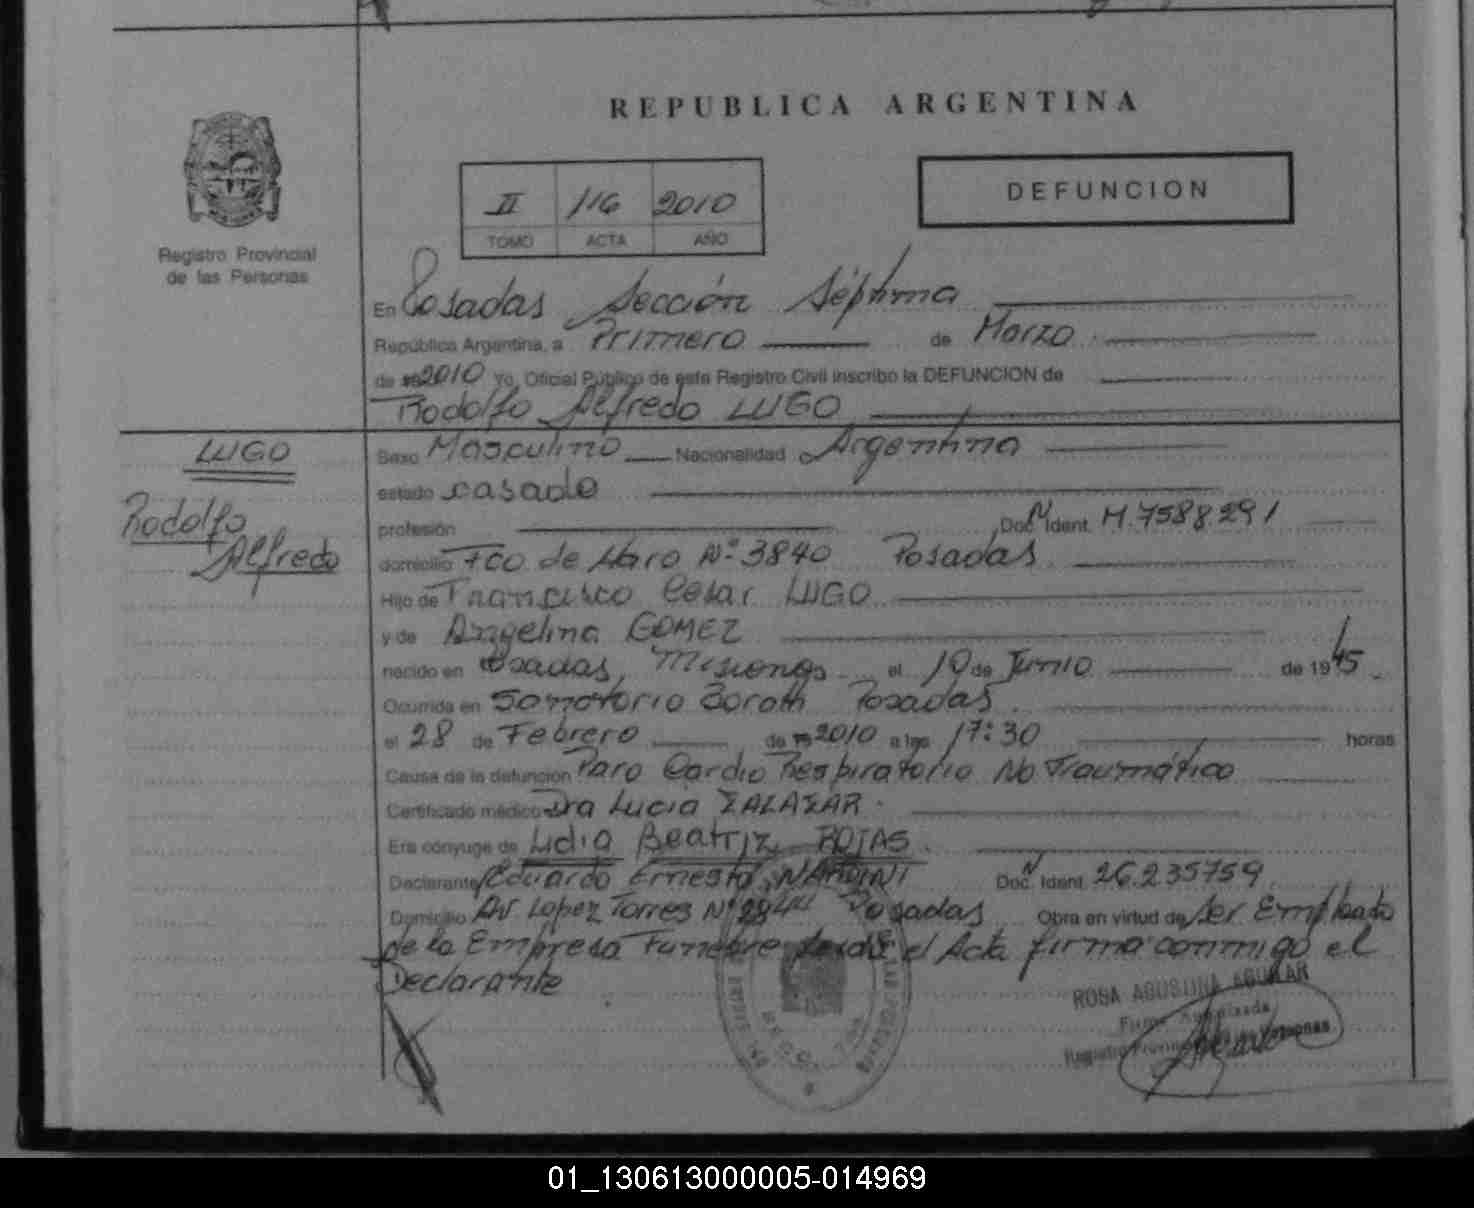 REPUBLICA ARGENTINA
II 116 2010
TOMO ACTA AÑO
DEFUNCION
Registro Provincial
de las Personas
En Posadas Sección Séptima
República Argentina, a Primero de Marzo
de 2010 Yo, Oficial Público de este Registro Civil inscribo la DEFUNCION de
Rodolfo Alfredo LUGO
LUGO
Rodolfo
Alfredo
Sexo Masculino Nacionalidad Argentina
estado casado
profesión Doc. N Ident. M.7588291
domicilio Fco de Haro Nº 3840 Posadas
Hijo de Francisco Cesar LUGO
y de Angelina GOMEZ
nacido en Posadas, Misiones el 10 de Junio de 1945
Ocurrida en Sanatorio Boratti Posadas
el 28 de Febrero de 2010 a las 17:30 horas
Causa de la defunción Paro Cardio Respiratorio No Traumático
Certificado médico Dra Lucia ZALAZAR.
Era cónyuge de Lidia Beatriz ROJAS.
Declarante Eduardo Ernesto NARDINI Doc. N Ident. 26.235759
Domicilio Av Lopez Torres Nº 2844 Posadas Obra en virtud de Ser Empleado
de la Empresa Funebre el Acta firma conmigo el
Declarante
ROSA AGUSTINA AGUILAR
Firma Autorizada
Registro Provincial de las Personas
01_130613000005-014969